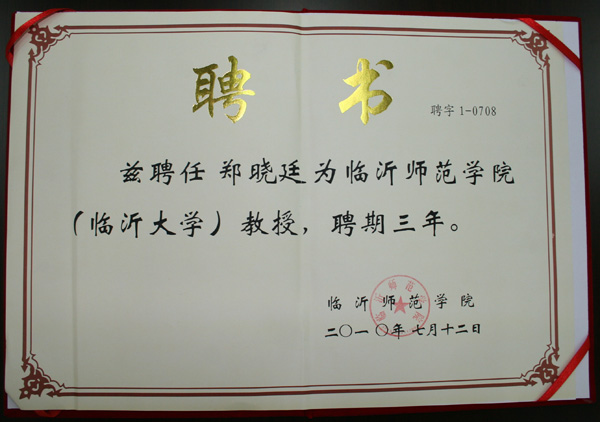 聘 书
聘字 1-0708
兹聘任 郑晓廷为临沂师范学院
（临沂大学）教授，聘期三年。
临沂师范学院
二〇一〇年 七月十二日
临沂师范学院